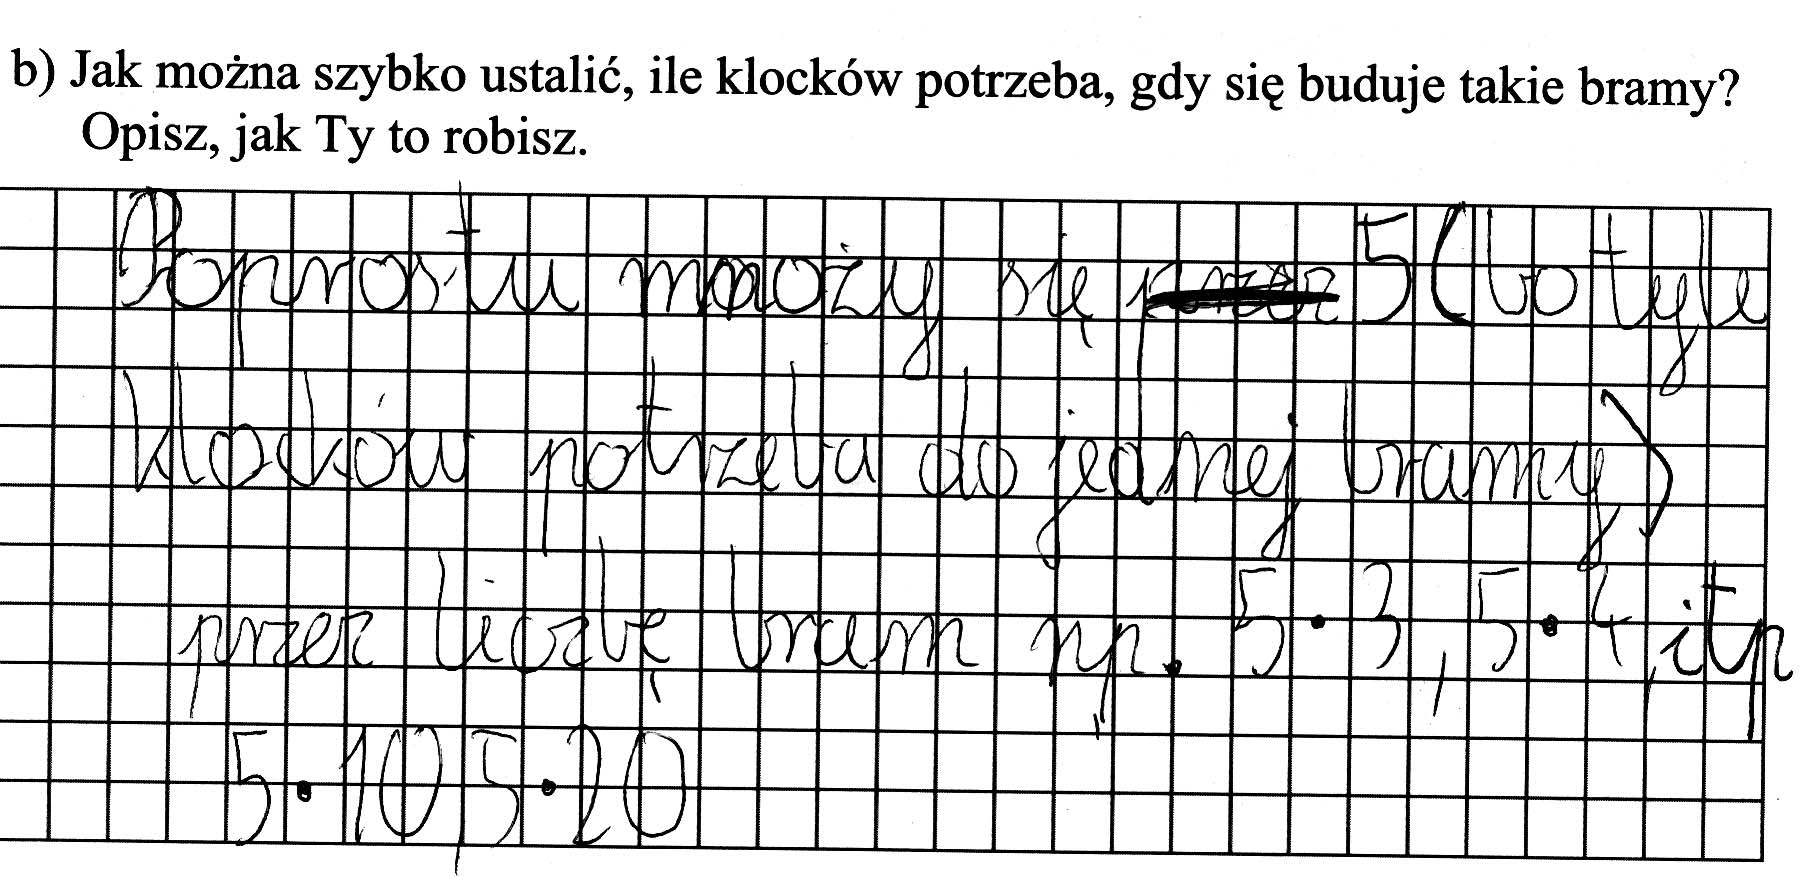 b) Jak można szybko ustalić, ile klocków potrzeba, gdy się buduje takie bramy?
Opisz, jak Ty to robisz.
Poprostu mnoży się przez 5 (bo tyle
klocków potrzeba do jednej bramy)
przez liczbę bram np. 5·3, 5·4, itp
5·10, 5·20